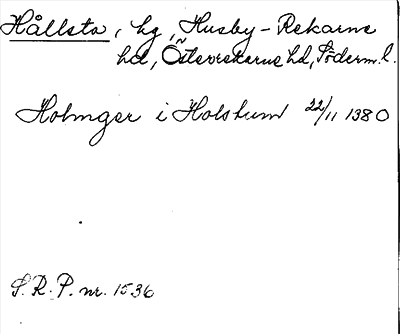 Hållsta, hg, Husby-Rekarne
hd, Österrekarne hd, Söderm. l.
Holmger i Holstum 22/11 1380
S.R.P. nr. 1536